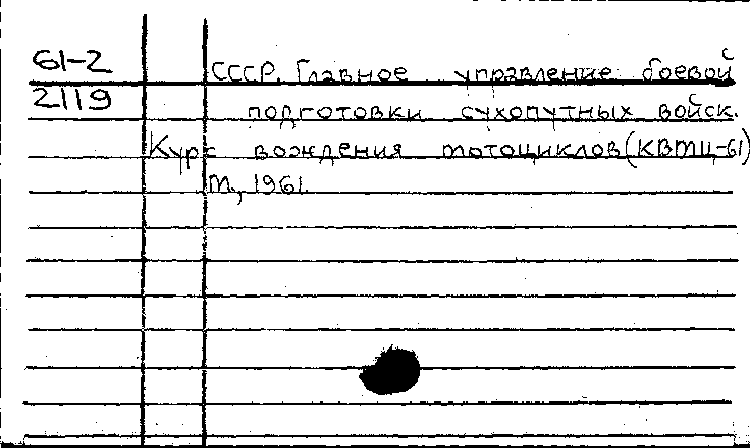 61-2 СССР. Главное управление боевой
2119 подготовки сухопутных войск.
Курс вождения мотоциклов (КВМЦ-61)
М., 1961.